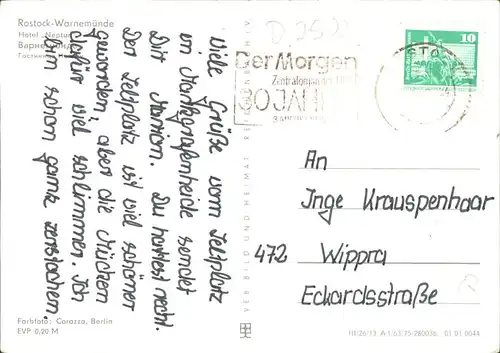 Rostock-Warnemünde
Hotel „Neptun
Viele Grüße vom Zeltplatz
in Markgrafenheide sendet
Dir Marion. Du hattest recht.
Der Zeltplatz ist viel schöner
geworden, aber die Mücken
dafür viel schlimmer. Ich
bin schon ganz zerstochen.
Farbfoto: Corazza, Berlin
EVP 0,20 M
VEB BILD UND HEIMAT
Der Morgen
Zentralorgan der
30 JAHRE
10
An
Inge Krauspenhaar
472 Wippra
Eckardsstraße
III/26/13 A 1/63/75-280036 01 01 0044